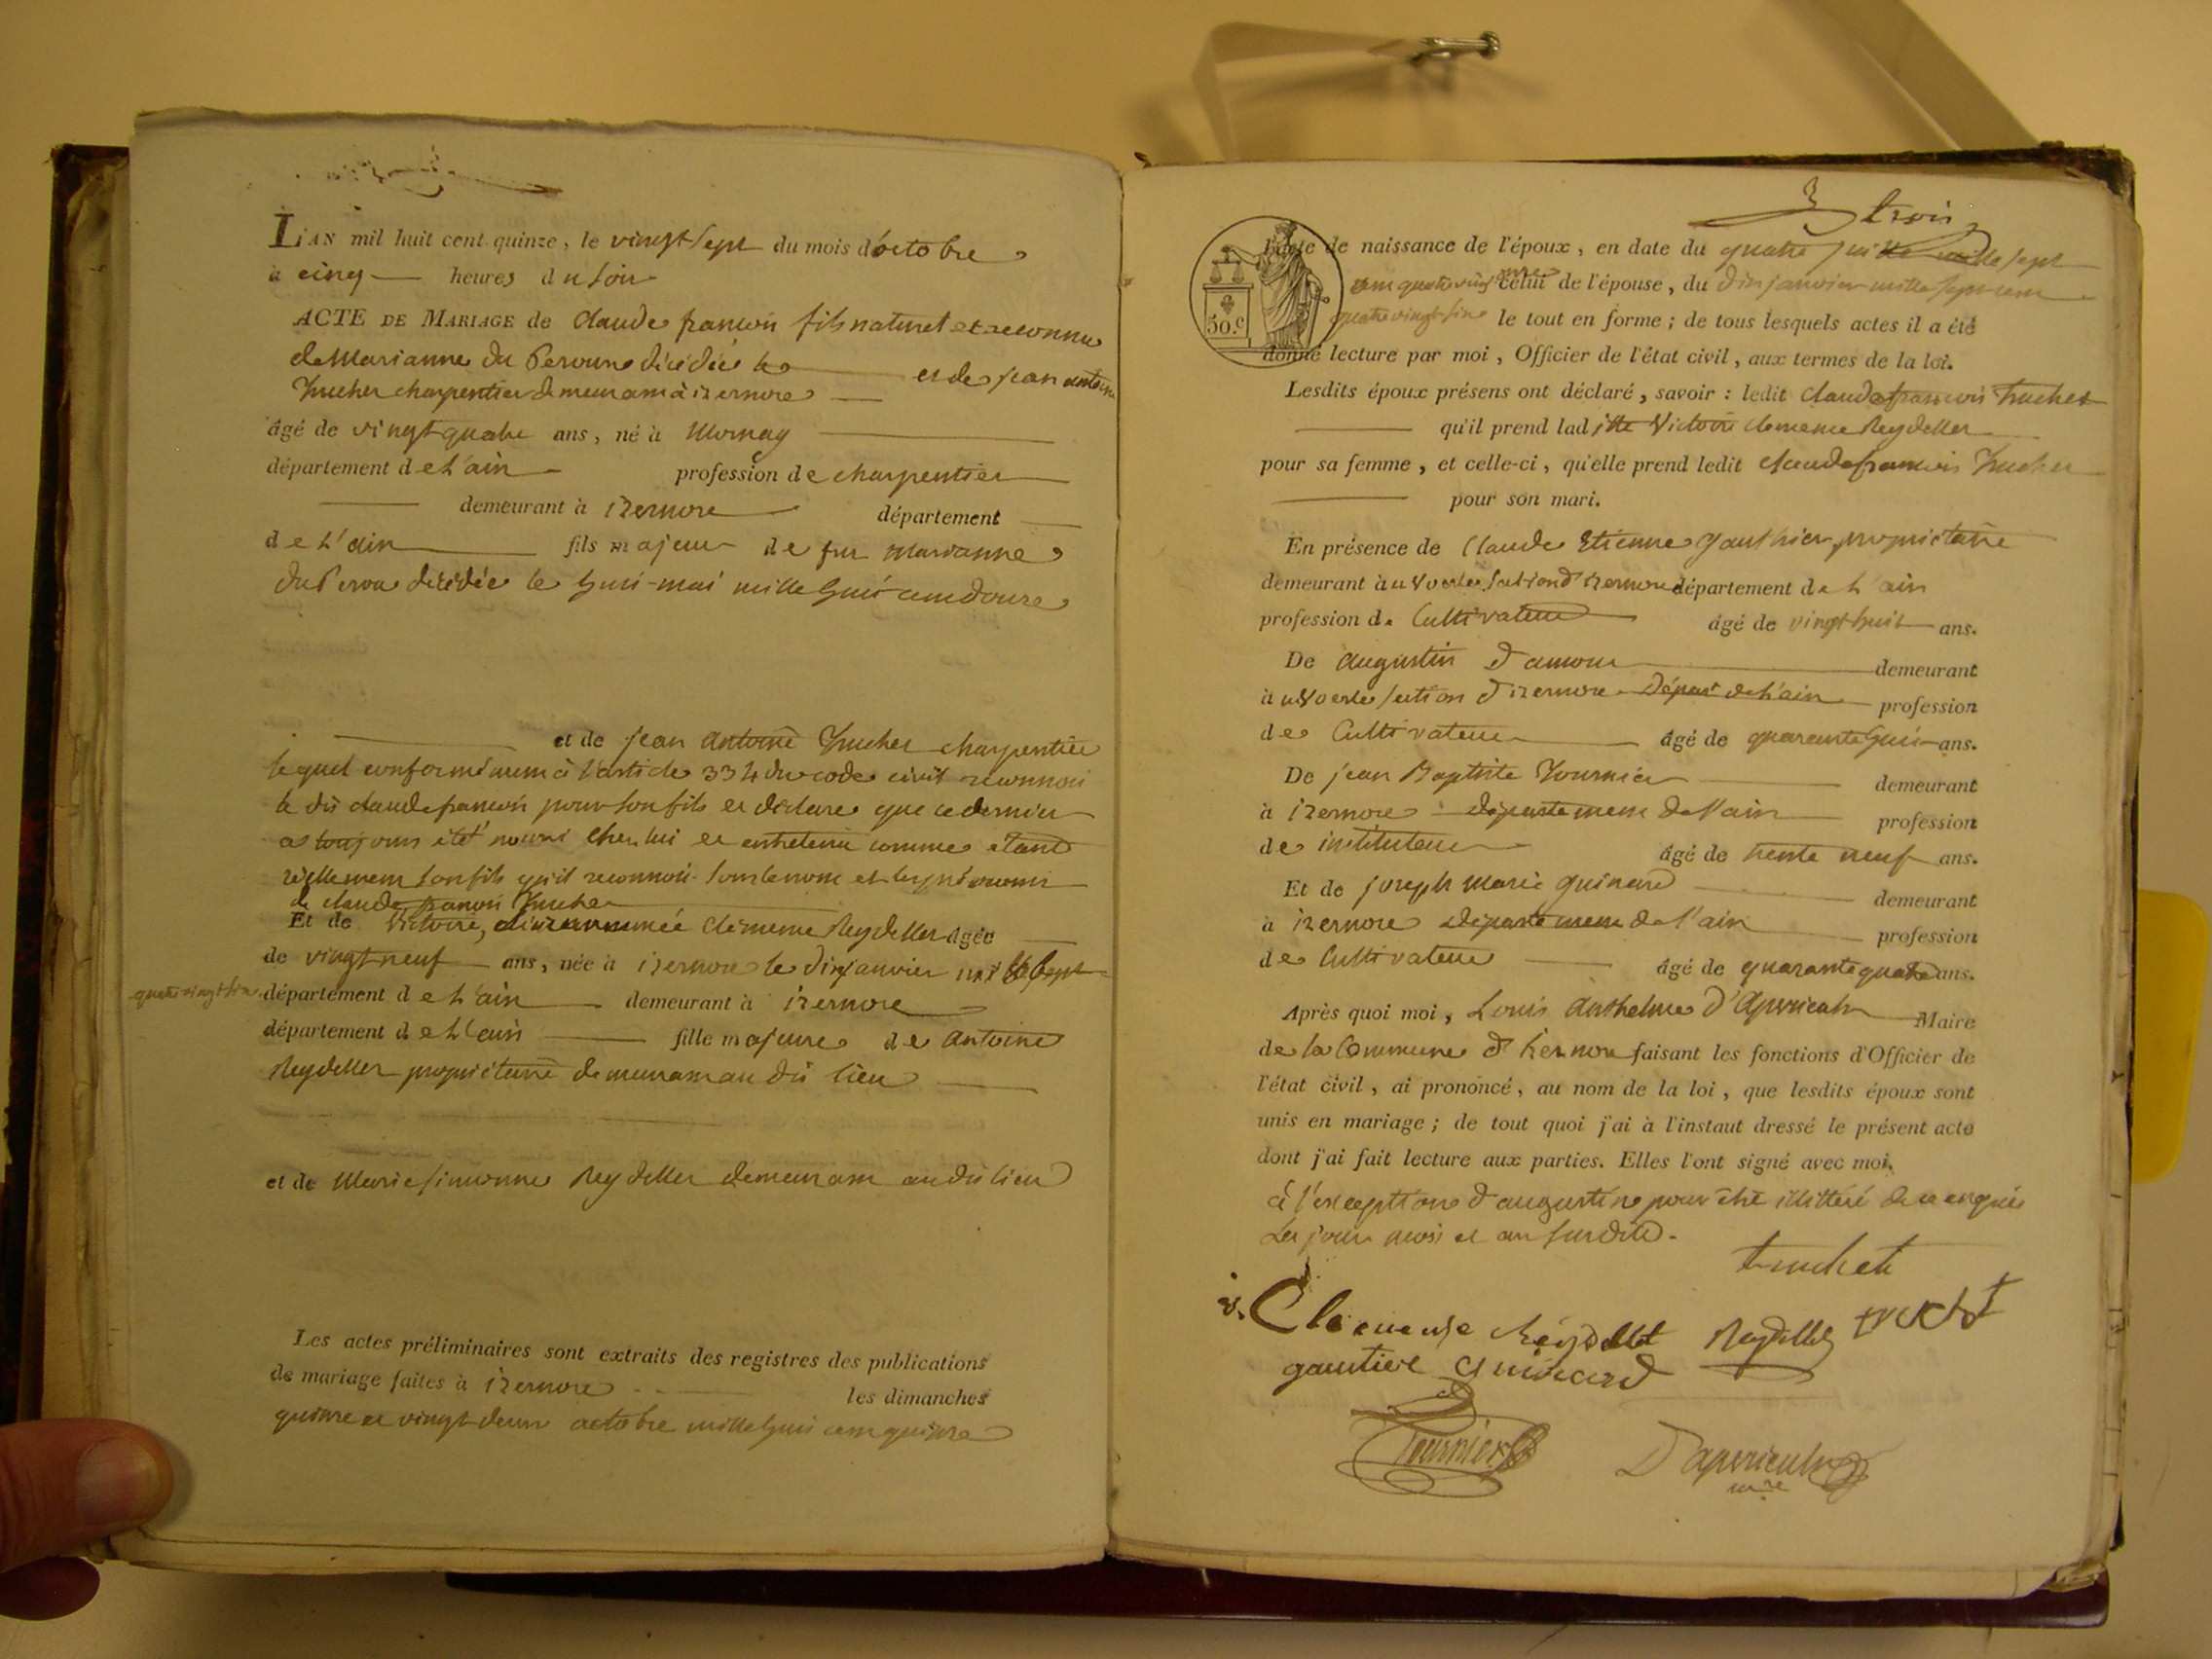 L'AN mil huit cent quinze, le vingt sept du mois d'octobre
à cinq heures du soir
ACTE DE MARIAGE de Claude françois fils naturel et reconnu
de Marianne du Peroun décédée le et de jean antoine
Truchet charpentier demeurant à izernore
âgé de vingt quatre ans, né à Mornay
département de l'ain profession de charpentier
demeurant à izernore département
de l'ain fils majeur de feu Marianne
du Perou décédée le huit mai mille huit cent douze
et de jean antoine Truchet charpentier
lequel conformément à l'article 334 du code civil reconnoit
le dit claude françois pour son fils et déclare que ce dernier
a toujours été nourri chez lui et entretenu comme étant
réellement son fils qu'il reconnoit sous le nom et les prénoms
de claude françois Truchet
Et de Victoire, Clémence Reydellet âgée
de vingt neuf ans, née à izernore le dix janvier mil sept
quatre vingt six département de l'ain demeurant à izernore
département de l'ain fille majeure de antoine
Reydellet propriétaire demeurant au dit lieu
et de Marie simonne Reydellet demeurant au dit lieu
Les actes préliminaires sont extraits des registres des publications
de mariage faites à izernore les dimanches
quinze et vingt deux octobre mille huit cent quinze
3 trois
L'acte de naissance de l'époux, en date du quatre mille sept
cent quatre vingt onze celui de l'épouse, du dix janvier mille sept cent
50.c quatre vingt six le tout en forme; de tous lesquels actes il a été
donné lecture par moi, Officier de l'état civil, aux termes de la loi.
Lesdits époux présens ont déclaré, savoir : ledit Claude françois Truchet
qu'il prend ladite Victoire Clemence Reydellet
pour sa femme, et celle-ci, qu'elle prend ledit Claude françois Truchet
pour son mari.
En présence de Claude Etienne gauthier, propriétaire
demeurant à section d'izernore département de l'ain
profession de Cultivateur âgé de vingt huit ans.
De augustin d'amour demeurant
à section d'izernore Départ de l'ain profession
de Cultivateur âgé de quarante huit ans.
De jean Baptiste Tournier demeurant
à izernore département de l'ain profession
de instituteur âgé de trente neuf ans.
Et de joseph marie guinard demeurant
à izernore département de l'ain profession
de Cultivateur âgé de quarante quatre ans.
Après quoi moi, Louis Anthelme d'Apvrieulx Maire
de la Commune d'izernore faisant les fonctions d'Officier de
l'état civil, ai prononcé, au nom de la loi, que lesdits époux sont
unis en mariage; de tout quoi j'ai à l'instant dressé le présent acte
dont j'ai fait lecture aux parties. Elles l'ont signé avec moi.
à l'exception d'augustin pour être illitéré de ce enquis
Les jour mois et an susdits.
truchet
v. Clémence Réydellet Reydellet truchet
gautier guinard
Tournier D'apvrieulx
mre